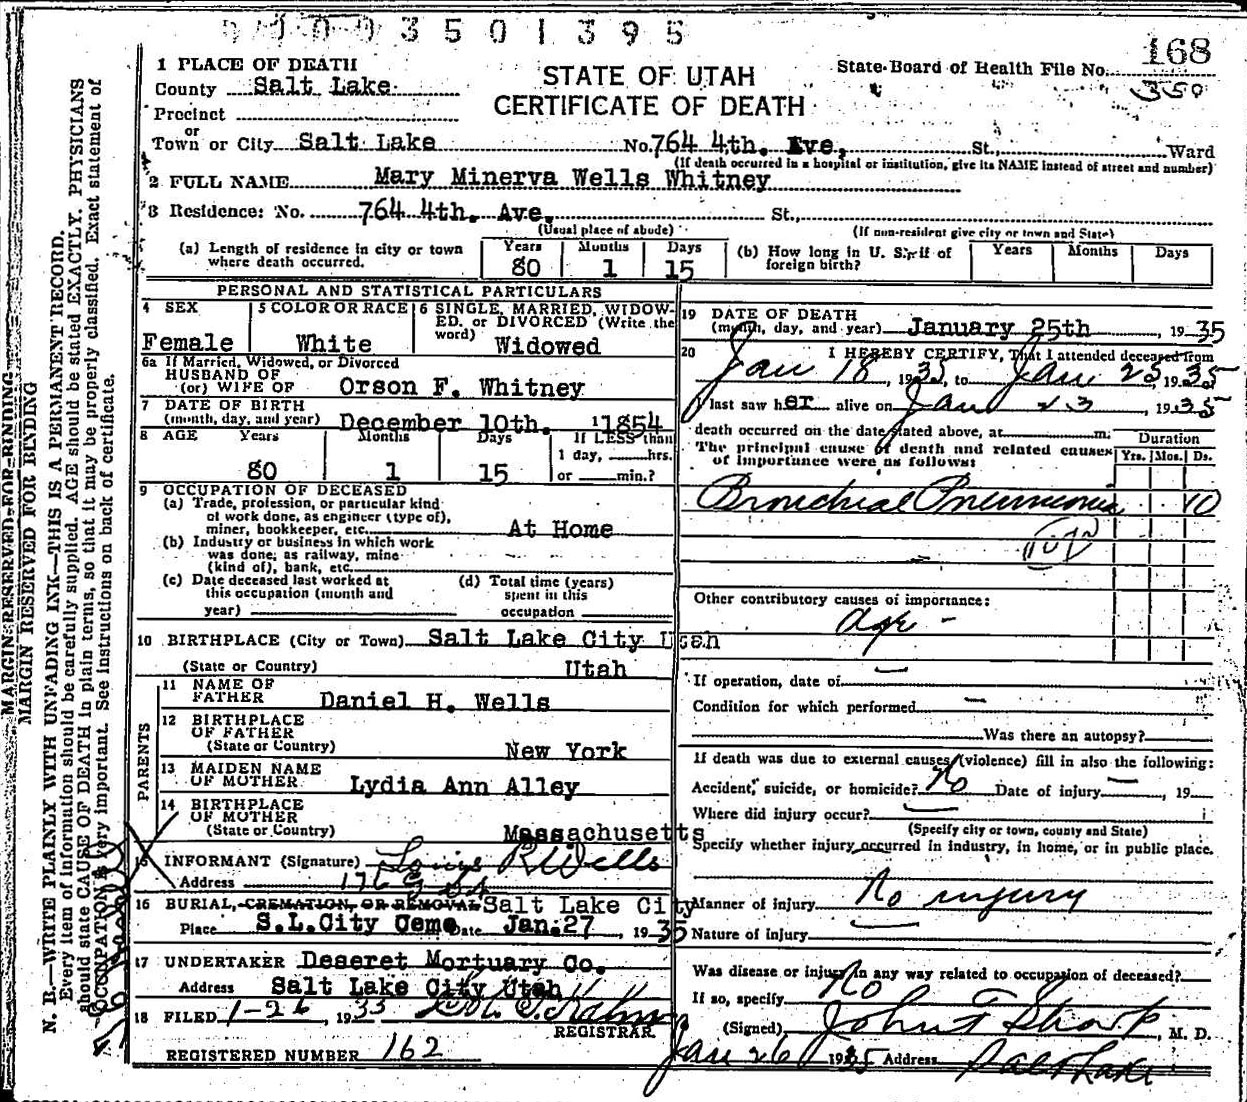 3501395
168
350
1 PLACE OF DEATH
County Salt Lake
Precinct
or
Town or City Salt Lake No. 764 4th. Eve, St., Ward
STATE OF UTAH
CERTIFICATE OF DEATH
State Board of Health File No.
(If death occurred in a hospital or institution, give its NAME instead of street and number)
2 FULL NAME Mary Minerva Wells Whitney
3 Residence: No. 764 4th. Ave, St.,
(Usual place of abode) (If non-resident give city or town and State)
(a) Length of residence in city or town where death occurred. Years 80 Months 1 Days 15
(b) How long in U. S. if of foreign birth? Years Months Days
PERSONAL AND STATISTICAL PARTICULARS
4 SEX Female
5 COLOR OR RACE White
6 SINGLE, MARRIED, WIDOWED. or DIVORCED (Write the word) Widowed
6a If Married, Widowed, or Divorced
HUSBAND OF
(or) WIFE OF Orson F. Whitney
7 DATE OF BIRTH
(month, day, and year) December 10th. 1854
8 AGE Years 80 Months 1 Days 15 If LESS than 1 day, hrs. or min.?
9 OCCUPATION OF DECEASED
(a) Trade, profession, or particular kind
of work done, as engineer (type of),
miner, bookkeeper, etc. At Home
(b) Industry or business in which work
was done; as railway, mine
(kind of), bank, etc.
(c) Date deceased last worked at
this occupation (month and
year)
(d) Total time (years)
spent in this
occupation
10 BIRTHPLACE (City or Town) Salt Lake City Utah
(State or Country) Utah
PARENTS
11 NAME OF
FATHER Daniel H. Wells
12 BIRTHPLACE
OF FATHER
(State or Country) New York
13 MAIDEN NAME
OF MOTHER Lydia Ann Alley
14 BIRTHPLACE
OF MOTHER
(State or Country) Massachusetts
15 INFORMANT (Signature) R Wells
Address 176
16 BURIAL, CREMATION, OR REMOVAL Salt Lake City
Place S.L.City Ceme Date Jan. 27, 1935
17 UNDERTAKER Deseret Mortuary Co.
Address Salt Lake City Utah
18 FILED 1-26, 1935
REGISTRAR
REGISTERED NUMBER 162
19 DATE OF DEATH
(month, day, and year) January 25th, 1935
20 I HEREBY CERTIFY, That I attended deceased from
Jan 18, 1935, to Jan 25 1935
I last saw her alive on Jan 23, 1935
death occurred on the date stated above, at m.
The principal cause of death and related causes
of importance were as follows:
Duration
Yrs. Mos. Ds.
Bronchial Pneumonia 10
Other contributory causes of importance:
Age -
If operation, date of
Condition for which performed
Was there an autopsy?
If death was due to external causes (violence) fill in also the following:
Accident, suicide, or homicide? No Date of injury , 19
Where did injury occur?
(Specify city or town, county and State)
Specify whether injury occurred in industry, in home, or in public place.
Manner of injury No injury
Nature of injury
Was disease or injury in any way related to occupation of deceased?
If so, specify No
(Signed) John F Sharp, M. D.
Jan 26 1935 Address Salt Lake
MARGIN RESERVED FOR BINDING
MARGIN RESERVED FOR BINDING
N. B.—WRITE PLAINLY WITH UNFADING INK—THIS IS A PERMANENT RECORD.
Every item of information should be carefully supplied. AGE should be stated EXACTLY. PHYSICIANS
should state CAUSE OF DEATH in plain terms, so that it may be properly classified. Exact statement of
OCCUPATION is very important. See instructions on back of certificate.